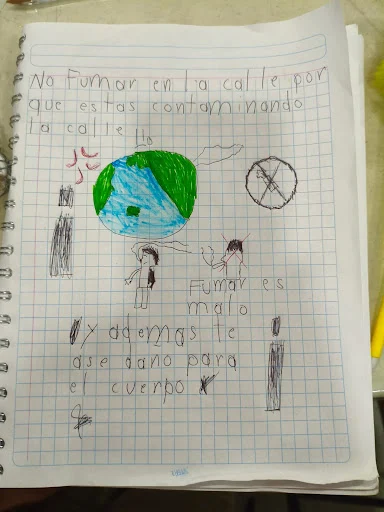 No Fumar en la calle por
que estas contaminando
la calle
No
Fumar es
malo
y ademas te
ase daño para
el cuerpo